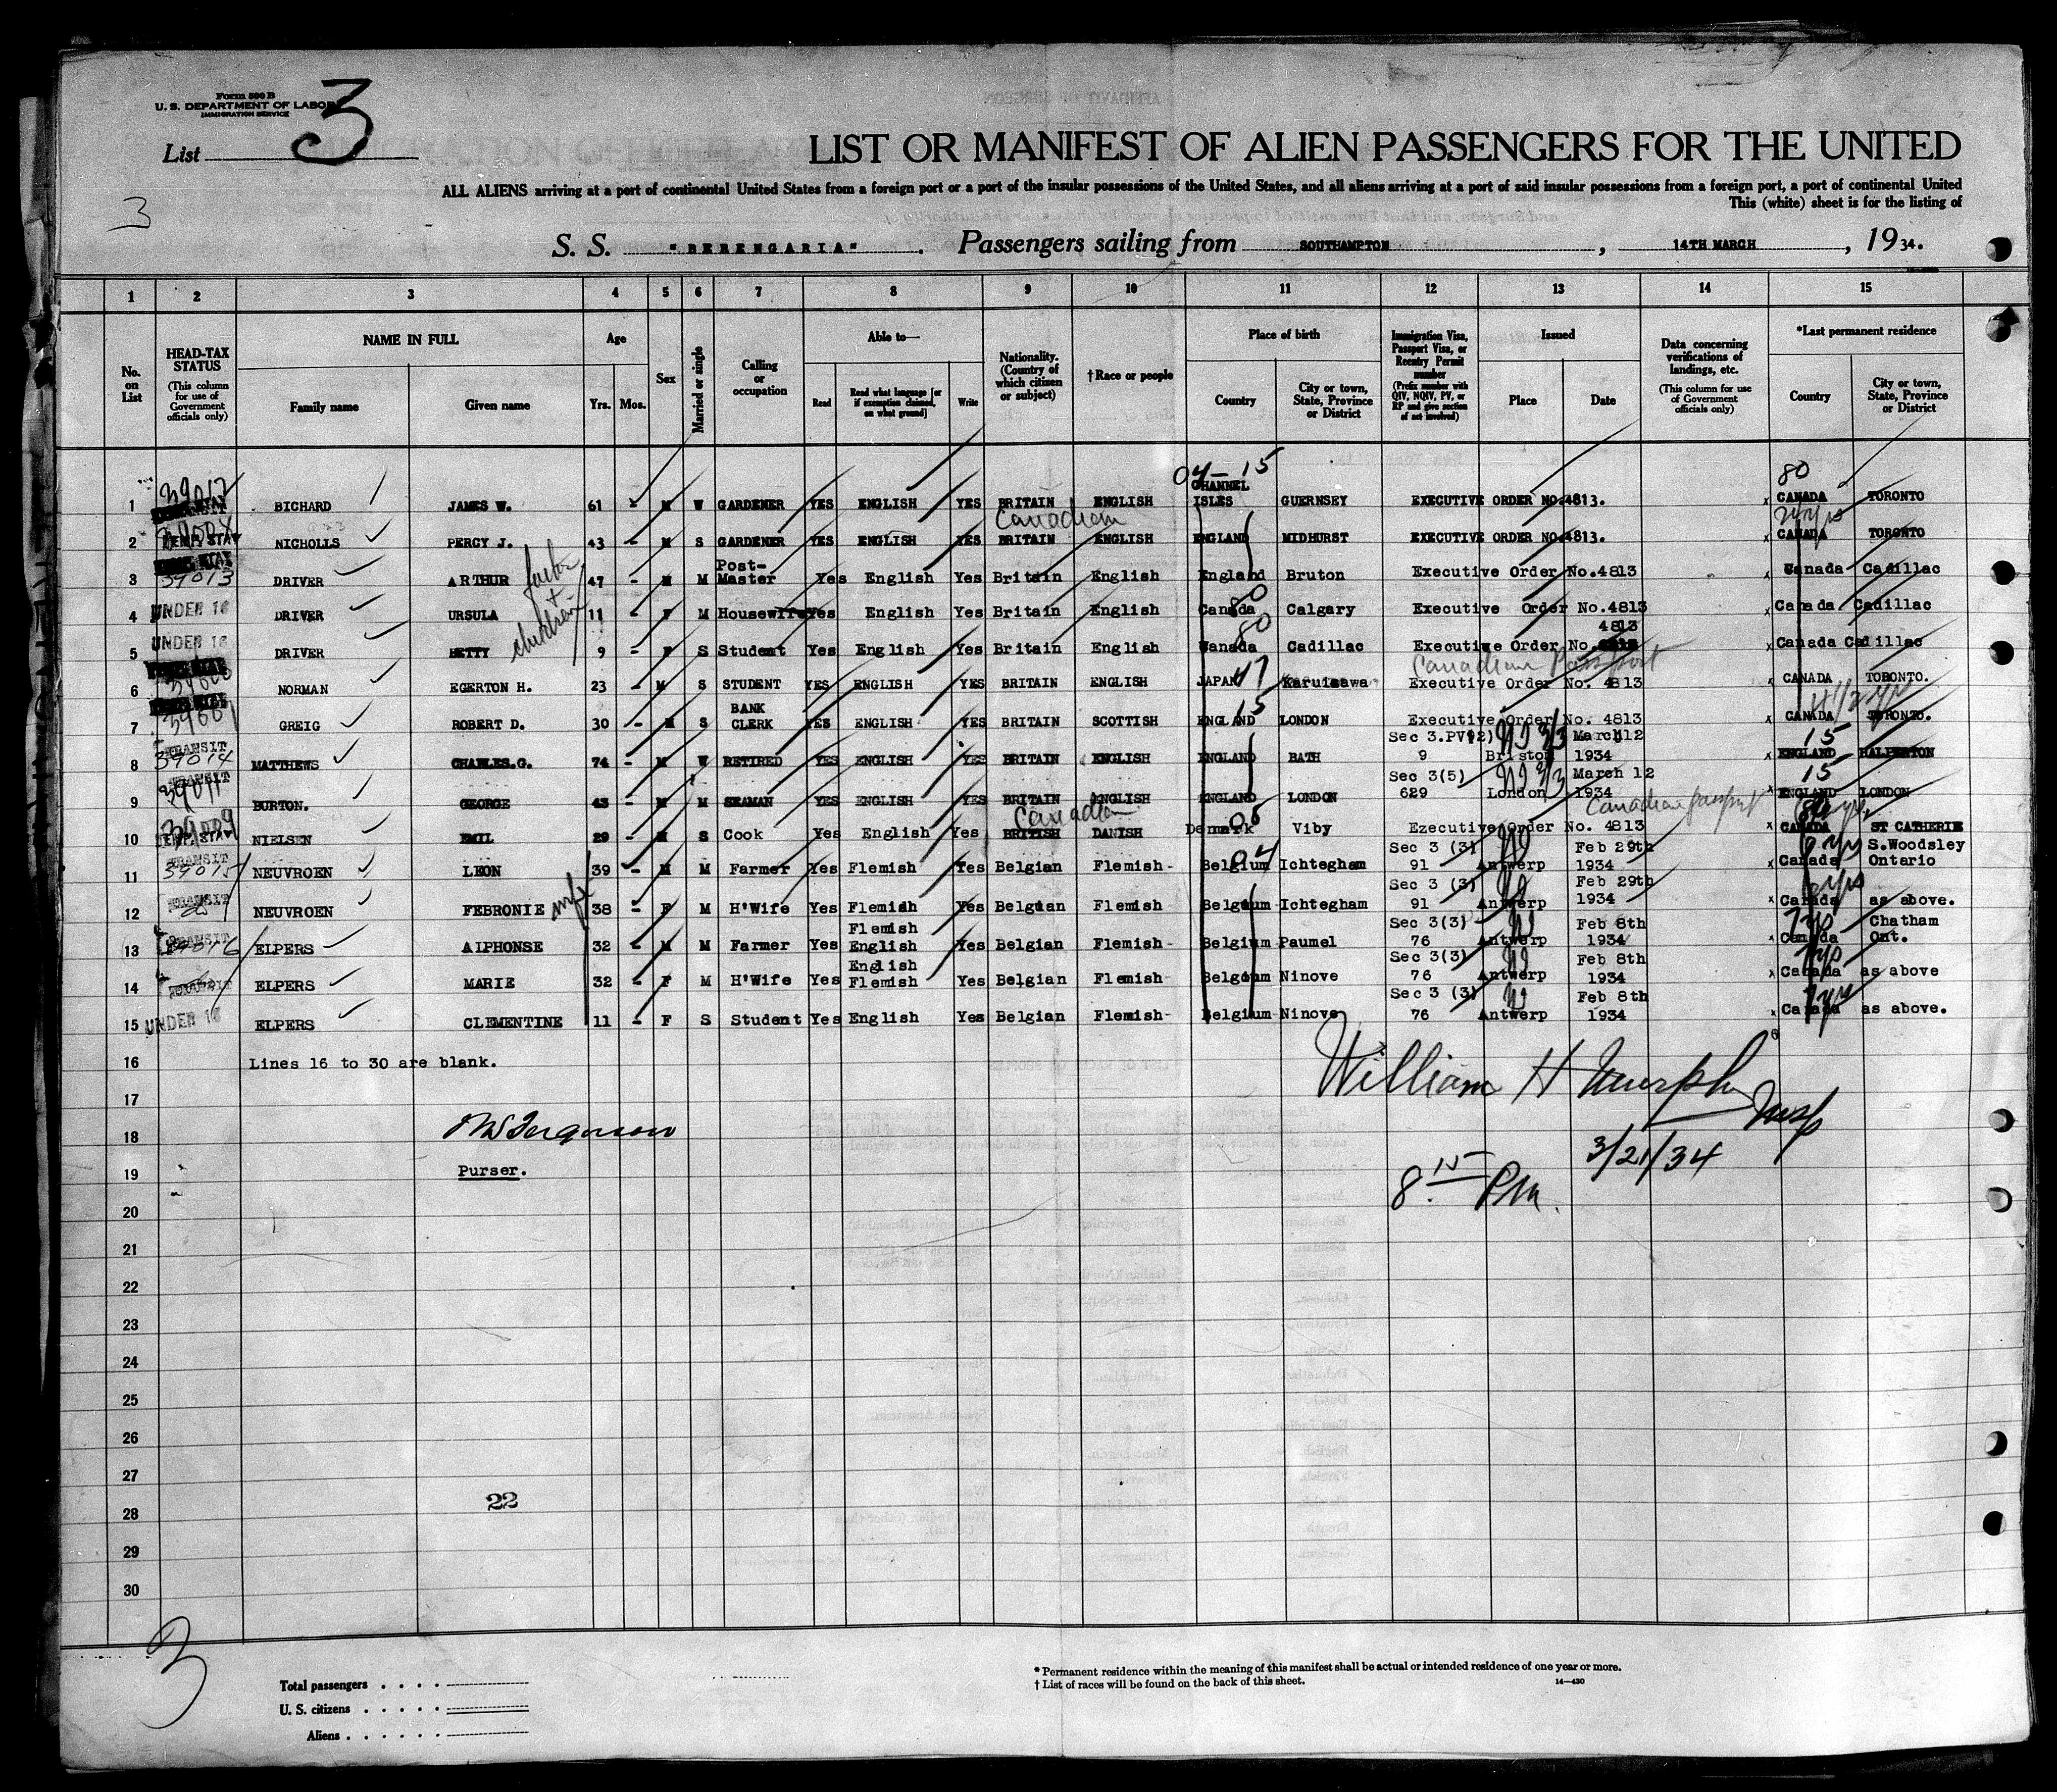 Form 500 B
U. S. DEPARTMENT OF LABOR
IMMIGRATION SERVICE
List 3
LIST OR MANIFEST OF ALIEN PASSENGERS FOR THE UNITED
ALL ALIENS arriving at a port of continental United States from a foreign port or a port of the insular possessions of the United States, and all aliens arriving at a port of said insular possessions from a foreign port, a port of continental United
This (white) sheet is for the listing of
3
S. S. "BERENGARIA" . Passengers sailing from SOUTHAMPTON , 14TH MARCH , 1934.
1 2 3 4 5 6 7 8 9 10 11 12 13 14 15
No. on List
HEAD-TAX STATUS (This column for use of Government officials only)
NAME IN FULL
Family name Given name
Age
Yrs. Mos.
Sex
Married or single
Calling or occupation
Able to—
Read Read what language [or if exemption claimed, on what ground] Write
Nationality. (Country of which citizen or subject)
† Race or people
Place of birth
Country City or town, State, Province or District
Immigration Visa, Passport Visa, or Reentry Permit number (Prefix number with QIV, NQIV, PV, or RP and give section of act involved)
Issued
Place Date
Data concerning verifications of landings, etc. (This column for use of Government officials only)
*Last permanent residence
Country City or town, State, Province or District
04-15 80
1 39012 BICHARD JAMES W. 61 - M W GARDENER YES ENGLISH YES BRITAIN ENGLISH CHANNEL ISLES GUERNSEY EXECUTIVE ORDER NO.4813. x CANADA TORONTO
Canadian
2 NICHOLLS PERCY J. 43 - M S GARDENER YES ENGLISH YES BRITAIN ENGLISH ENGLAND MIDHURST EXECUTIVE ORDER NO.4813. x CANADA TORONTO
3 39013 DRIVER ARTHUR 47 - M M Post-Master Yes English Yes Britain English England Bruton Executive Order No.4813 x Canada Cadillac
father + children
4 UNDER 16 DRIVER URSULA 11 - F M Housewife Yes English Yes Britain English Canada 80 Calgary Executive Order No.4813 x Canada Cadillac
4813
5 UNDER 16 DRIVER BETTY 9 - F S Student Yes English Yes Britain English Canada 80 Cadillac Executive Order No. x Canada Cadillac
Canadian Passport
6 NORMAN EGERTON H. 23 - M S STUDENT YES ENGLISH YES BRITAIN ENGLISH JAPAN 47 Karuizawa Executive Order No. 4813 CANADA TORONTO.
7 GREIG ROBERT D. 30 - M S BANK CLERK YES ENGLISH YES BRITAIN SCOTTISH ENGLAND 15 LONDON Executive Order No. 4813 x CANADA TORONTO.
8 TRANSIT 39014 MATTHEWS CHARLES.G. 74 - M W RETIRED YES ENGLISH YES BRITAIN ENGLISH ENGLAND BATH Sec 3.PV(2) 9 Bristol March 12 1934 x 15 ENGLAND HALPERTON
9 TRANSIT 39011 BURTON. GEORGE 43 - M M SEAMAN YES ENGLISH YES BRITAIN ENGLISH ENGLAND LONDON Sec 3(5) 629 London March 12 1934 x 15 ENGLAND LONDON
Canadian Canadian passport
10 39009 NIELSEN EMIL 29 - M S Cook Yes English Yes BRITISH DANISH Denmark 06 Viby Ezecutive Order No. 4813 x CANADA ST CATHERIE
11 TRANSIT 39015 NEUVROEN LEON 39 - M M Farmer Yes Flemish Yes Belgian Flemish- Belgium 04 Ichtegham Sec 3 (3) 91 Antwerp Feb 29th 1934 x Canada S.Woodsley Ontario
12 TRANSIT NEUVROEN FEBRONIE wife 38 - F M H'Wife Yes Flemish Yes Belgian Flemish- Belgium Ichtegham Sec 3 (3) 91 Antwerp Feb 29th 1934 x Canada 6 yrs as above.
13 TRANSIT 39016 ELPERS AlPHONSE 32 - M M Farmer Yes Flemish English Yes Belgian Flemish- Belgium Paumel Sec 3(3) 76 Antwerp Feb 8th 1934 x Canada 7 yrs Chatham Ont.
14 ELPERS MARIE 32 - F M H'Wife Yes English Flemish Yes Belgian Flemish- Belgium Ninove Sec 3(3) 76 Antwerp Feb 8th 1934 x Canada 7 yrs as above
15 UNDER 16 ELPERS CLEMENTINE 11 - F S Student Yes English Yes Belgian Flemish- Belgium Ninove Sec 3 (3) 76 Antwerp Feb 8th 1934 x Canada 7 yrs as above.
16 Lines 16 to 30 are blank.
William H Murphy Insp
17
18 Ferguson
3/21/34
19 Purser.
8 15 PM.
20
21
22
23
24
25
26
27
22
28
29
30
3
Total passengers . . . .
U. S. citizens . . . . .
Aliens . . . . . .
* Permanent residence within the meaning of this manifest shall be actual or intended residence of one year or more.
† List of races will be found on the back of this sheet.
14—430